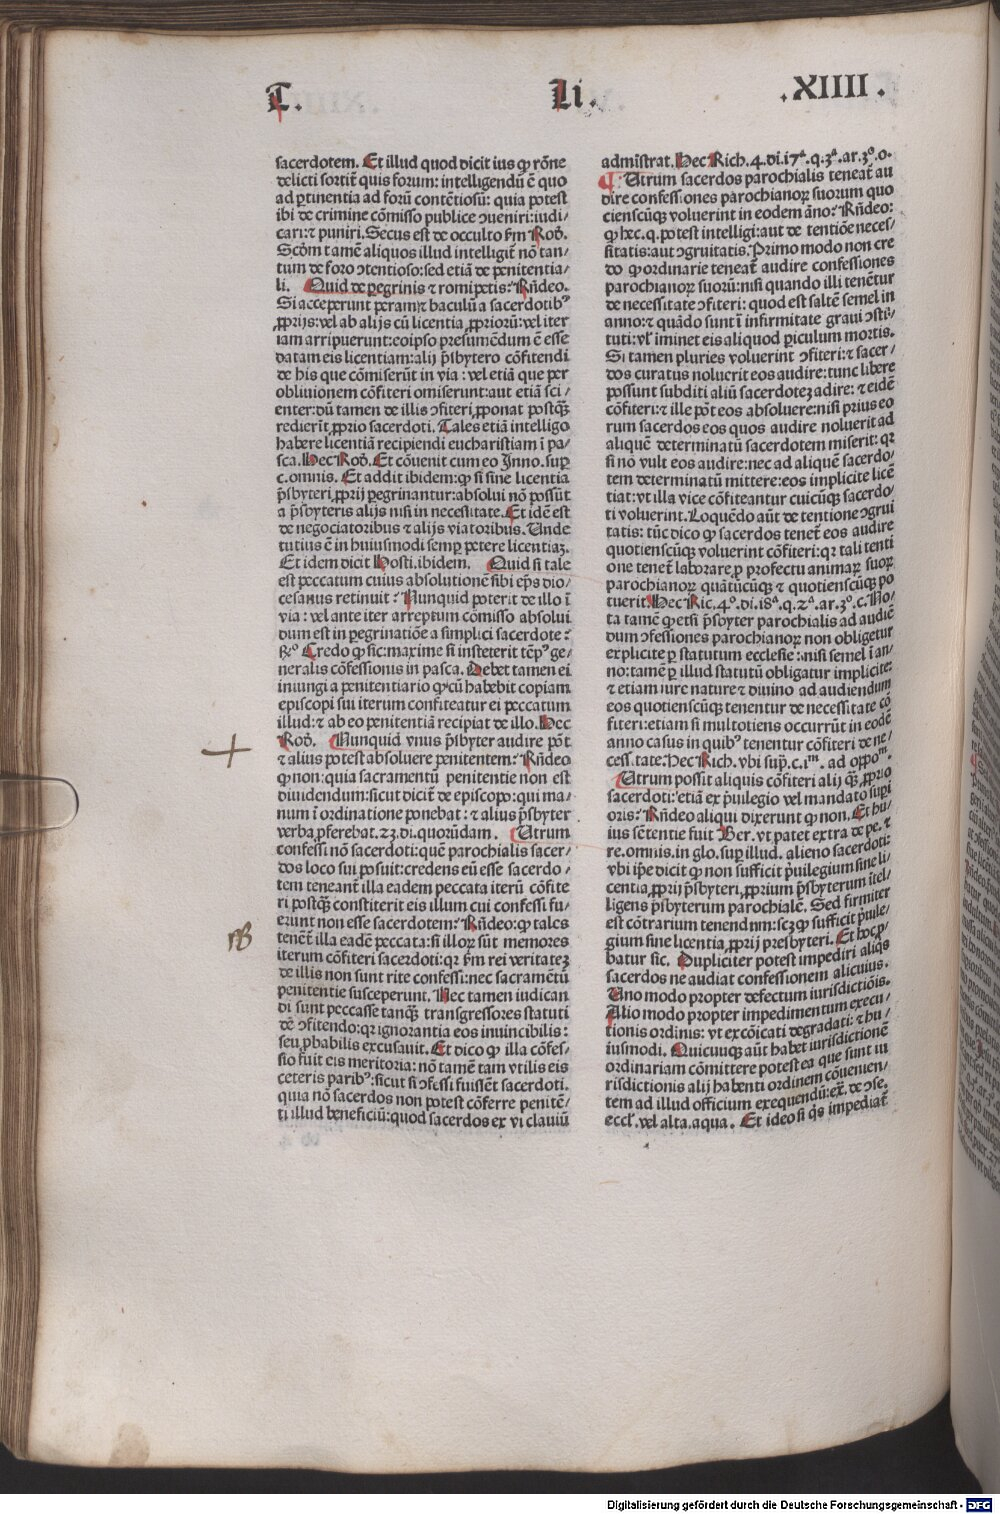 T. Li. .XIIII.
sacerdotem. Et illud quod dicit ius ꝙ rõne
delicti sortit̃ quis forum: intelligendũ ẽ quo
ad ꝑtinentia ad forũ contẽtiosũ: quia potest
ibi de crimine cõmisso publice ↄueniri: iudi⸗
cari: ⁊ puniri. Secus est de occulto ẜm Rob̃.
Scõm tamẽ aliquos illud intelligit̃ nõ tan⸗
tum de foro ↄtentioso: sed etiã de penitentia⸗
li. Quid de ꝑegrinis ⁊ romipetis: Rñdeo.
Si acceperunt peram ⁊ baculũ a sacerdotibꝰ
ꝓprijs: vel ab alijs cũ licentia ꝓpriorũ: vel iter
iam arripuerunt: eoipso presumẽdum ẽ esse
datam eis licentiam: alij p̃sbytero cõfitendi
de his que cõmiserũt in via : vel etiã que per
obliuionem cõfiteri omiserunt: aut etiã sci⸗
enter: dũ tamen de illis ↄfiteri ꝓponat postq̃ꝫ
redierit ꝓprio sacerdoti. Tales etiã intelligo
habere licentiã recipiendi eucharistiam ĩ pa⸗
sca. Hec Rob̃. Et cõuenit cum eo Inno. suꝑ
c. omnis. Et addit ibidem: ꝙ si sine licentia
p̃sbyteri ꝓprij ꝑegrinantur: absolui nõ possũt
a p̃sbyteris alijs nisi in necessitate. Et idẽ est
de negociatoribus ⁊ alijs viatoribus. Unde
tutius ẽ in huiusmodi semꝑ petere licentiaꝫ.
Et idem dicit Hosti. ibidem. Quid si tale
est peccatum cuius absolutionẽ sibi ep̃s dio⸗
cesanus retinuit: Nunquid poterit de illo ĩ
via : vel ante iter arreptum cõmisso absolui
dum est in ꝑegrinatiõe a simplici sacerdote:
R̃ꝰ Credo ꝙ sic: maxime si insteterit tẽpꝰ ge⸗
neralis cõfessionis in pasca. Debet tamen ei
iniungi a penitentiario ꝙ cũ habebit copiam
episcopi sui iterum confiteatur ei peccatum
illud: ⁊ ab eo penitentiã recipiat de illo. Hec
Rob̃. Nunquid vnus p̃sbyter audire põt
⁊ alius potest absoluere penitentem: Rñdeo
ꝙ non: quia sacramentũ penitentie non est
diuidendum: sicut dicit̃ de episcopo: qui ma⸗
num ĩ ordinatione ponebat : ⁊ alius p̃sbyter
verba ꝓferebat. 23. di. quorũdam. Utrum
confessi nõ sacerdoti: quẽ parochialis sacer⸗
dos loco sui posuit: credens eũ esse sacerdo⸗
tem teneant̃ illa eadem peccata iterũ cõfite
ri postq̃ꝫ constiterit eis illum cui confessi fu⸗
erunt non esse sacerdotem: Rñdeo: ꝙ tales
tenẽt̃ illa eadẽ peccata: si illoꝝ sũt memores
iterum cõfiteri sacerdoti: qꝛ ẜm rei veritateꝫ
de illis non sunt rite confessi: nec sacramẽtũ
penitentie susceperunt. Nec tamen iudican
di sunt peccasse tanq̃ꝫ transgressores statuti
dẽ ↄfitendo: qꝛ ignorantia eos inuincibilis:
seu ꝓbabilis excusauit. Et dico ꝙ illa cõfes⸗
sio fuit eis meritoria: nõ tamẽ tam vtilis eis
ceteris paribꝰ: sicut si ↄfessi fuissẽt sacerdoti.
quia nõ sacerdos non potest cõferre penitẽ⸗
ti illud beneficiũ: quod sacerdos ex vi clauiũ
admĩstrat. Hec Rich. 4. di. 17ª. q. 3ª. ar. 3º. o.
¶ Utrum sacerdos parochialis teneat̃ au
dire confessiones parochianoꝝ suorum quo
cienscũqꝫ voluerint in eodem ãno: Rñdeo:
ꝙ hec. q. potest intelligi: aut de tentiõe neces⸗
sitatis: aut ↄgruitatis. Primo modo non cre
do ꝙ ordinarie teneat̃ audire confessiones
parochianoꝝ suorũ: nisi quando illi tenẽtur
de necessitate ↄfiteri: quod est saltẽ semel in
anno: ⁊ quãdo sunt ĩ infirmitate graui ↄsti⸗
tuti: vl̃ iminet eis aliquod ꝑiculum mortis.
Si tamen pluries voluerint ↄfiteri: ⁊ sacer⸗
dos curatus noluerit eos audire: tunc libere
possunt subditi aliũ sacerdoteꝫ adire: ⁊ eidẽ
cõfiteri: ⁊ ille põt eos absoluere: nisi prius eo
rum sacerdos eos quos audire noluerit ad
aliquẽ determinatũ sacerdotem miserit: qꝛ
si nõ vult eos audire: nec ad aliquẽ sacerdo⸗
tem determinatũ mittere: eos implicite licẽ
tiat: vt illa vice cõfiteantur cuicũqꝫ sacerdo⸗
ti voluerint. Loquẽdo aũt de tentione ↄgrui
tatis: tũc dico ꝙ sacerdos tenet̃ eos audire
quotienscũqꝫ voluerint cõfiteri: qꝛ tali tenti
one tenet̃ laborare ꝓ profectu animaꝝ suoꝝ
parochianoꝝ quãtũcũqꝫ ⁊ quotienscũqꝫ po
tuerit. Hec Ric. 4º. di. 18ª. q. 2ª. ar. 3º. c. No⸗
ta tamẽ ꝙ etsi p̃sbyter parochialis ad audiẽ
dum ↄfessiones parochianoꝝ non obligetur
explicite ꝑ statutum ecclesie: nisi semel ĩ an⸗
no: tamẽ ꝑ illud statutũ obligatur implicite:
⁊ etiam iure nature ⁊ diuino ad audiendum
eos quotienscũqꝫ tenentur de necessitate cõ
fiteri: etiam si multotiens occurrũt in eodẽ
anno casus in quibꝰ tenentur cõfiteri de ne⸗
cessitate: Hec Rich. vbi sup̃. c. im. ad oppom.
Utrum possit aliquis cõfiteri alij q̃ꝫ ꝓprio
sacerdoti: etiã ex p̃uilegio vel mandato supĩ
oris: Rñdeo aliqui dixerunt ꝙ non. Et hu⸗
ius sẽtentie fuit Ber. vt patet extra de pe. ⁊
re. omnis. in glo. suꝑ illud. alieno sacerdoti:
vbi ip̃e dicit ꝙ non sufficit p̃uilegium sine li⸗
centia ꝓprij p̃sbyteri, ꝓprium p̃sbyterum ĩtel⸗
ligens p̃sbyterum parochialẽ. Sed firmiter
est cõtrarium tenendnm: scꝫ ꝙ sufficit p̃uile⸗
gium sine licentia ꝓprij presbyteri. Et hoc ꝓ⸗
batur sic. Dupliciter potest impediri aliq̃s
sacerdos ne audiat confessionem alicuius.
Uno modo propter defectum iurisdictiõis.
Alio modo propter impedimentum execu⸗
tionis ordinis: vt excõicati degradati: ⁊ hu⸗
iusmodi. Quicunqꝫ aũt habet iurisdictionẽ
ordinariam cõmittere potest ea que sunt iu
risdictionis alij habenti ordinem cõuenien⸗
tem ad illud officium exequendũ: ex̃. de ↄse.
eccl̃. vel alta. aqua. Et ideo si q̃s impediat̃
Digitalisierung gefördert durch die Deutsche Forschungsgemeinschaft - DFG